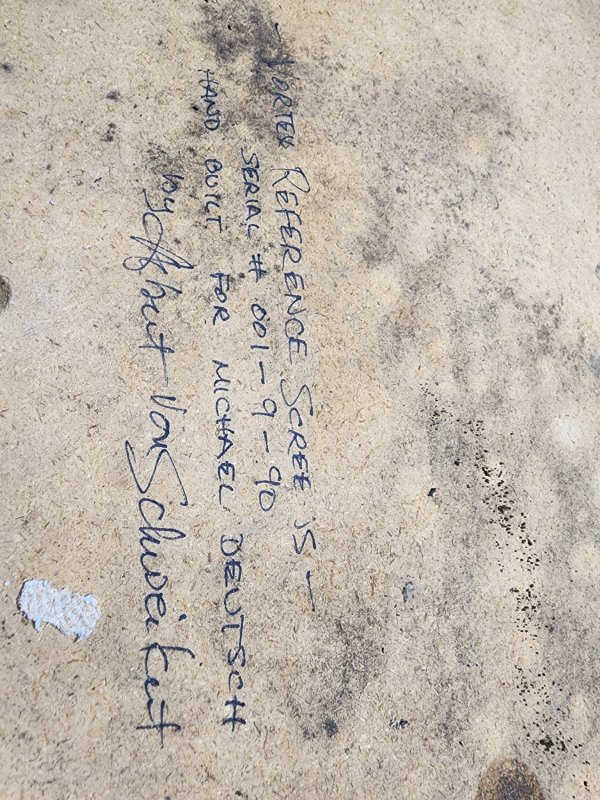 - VORTEX REFERENCE SCREE IS -
SERIAL # 001-9-90
HAND BUILT FOR MICHAEL DEUTSCH
by Albert Von Schweikert